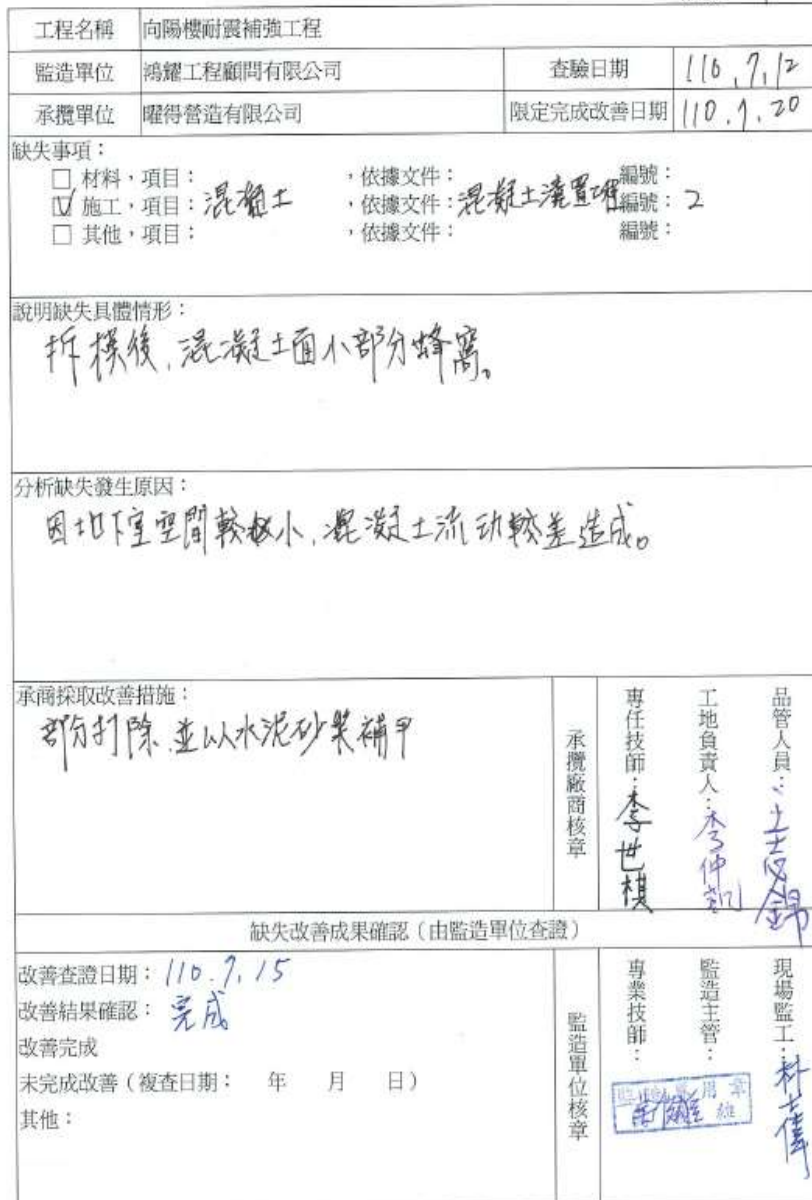 工程名稱 向陽樓耐震補強工程
監造單位 鴻耀工程顧問有限公司 查驗日期 110.7.12
承攬單位 曜得營造有限公司 限定完成改善日期 110.7.20
缺失事項：
□ 材料，項目： ，依據文件： 編號：
☑ 施工，項目：混凝土 ，依據文件：混凝土澆置 編號：2
□ 其他，項目： ，依據文件： 編號：
說明缺失具體情形：
拆模後，混凝土面小部分蜂窩。
分析缺失發生原因：
因地下室空間較狹小，混凝土流动較差造成。
承商採取改善措施：
部分打除，並以水泥砂漿補平
承攬廠商核章
專任技師：李世棋
工地負責人：李仲凱
品管人員：
缺失改善成果確認（由監造單位查證）
改善查證日期：110.7.15
改善結果確認：完成
改善完成
未完成改善（複查日期： 年 月 日）
其他：
監造單位核章
專業技師：
監造主管：
現場監工：